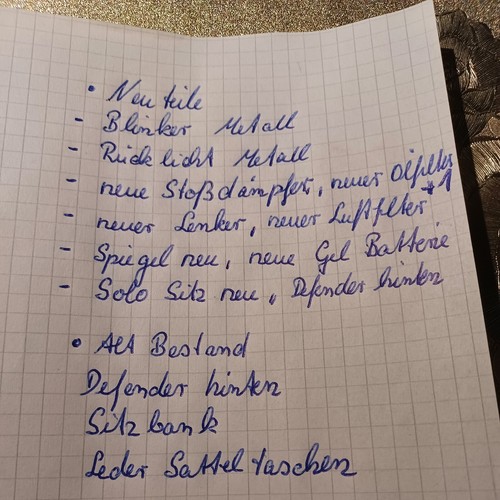 • Neu teile
- Blinker Metall
- Rück licht Metall
- neue Stoßdämpfer, neuer Ölfilter +1
- neuer Lenker, neuer Luftfilter
- Spiegel neu, neue Gel Batterie
- Solo Sitz neu, Defender hinten
• Alt Bestand
Defender hinten
Sitz bank
Leder Sattel taschen